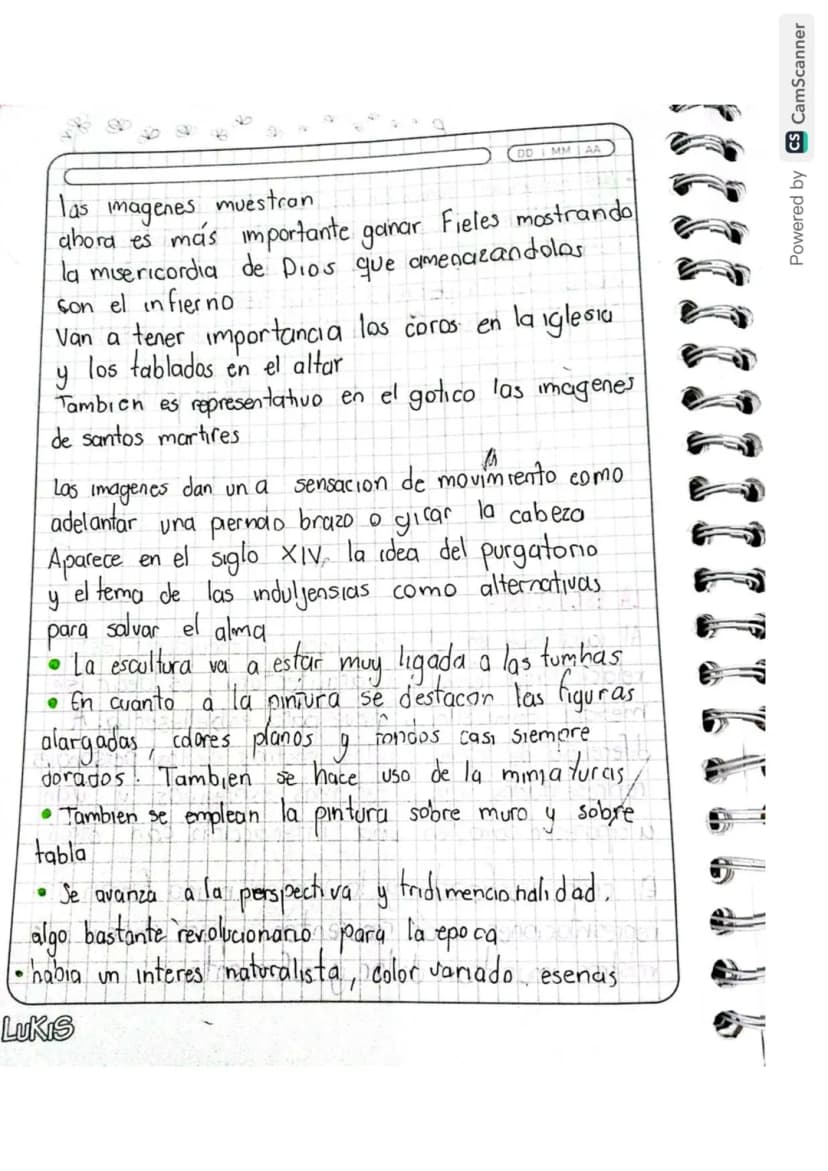 DD MM AA
las imagenes muestran
ahora es más importante ganar Fieles mostrando
la misericordia de Dios que amenazandolos
son el infierno
Van a tener importancia los coros en la iglesia
y los tablados en el altar
Tambien es representativo en el gotico las imagenes
de santos martires
Las imagenes dan una sensacion de movimiento como
adelantar una pierna o brazo o girar la cabeza
Aparece en el siglo XIV, la idea del purgatorio
y el tema de las induljensias como alternativas
para salvar el alma
• La escultura va a estar muy ligada a las tumbas
• En cuanto a la pintura se destacan las figuras
alargadas, colores planos y fondos casi siempre
dorados. Tambien se hace uso de la miniaturas
• Tambien se emplean la pintura sobre muro y sobre
tabla
• Se avanza a la perspectiva y tridimencionalidad.
algo bastante revolucionario para la epoca
• habia un interes naturalista, color variado. esenas
LUKIS
Powered by CS CamScanner